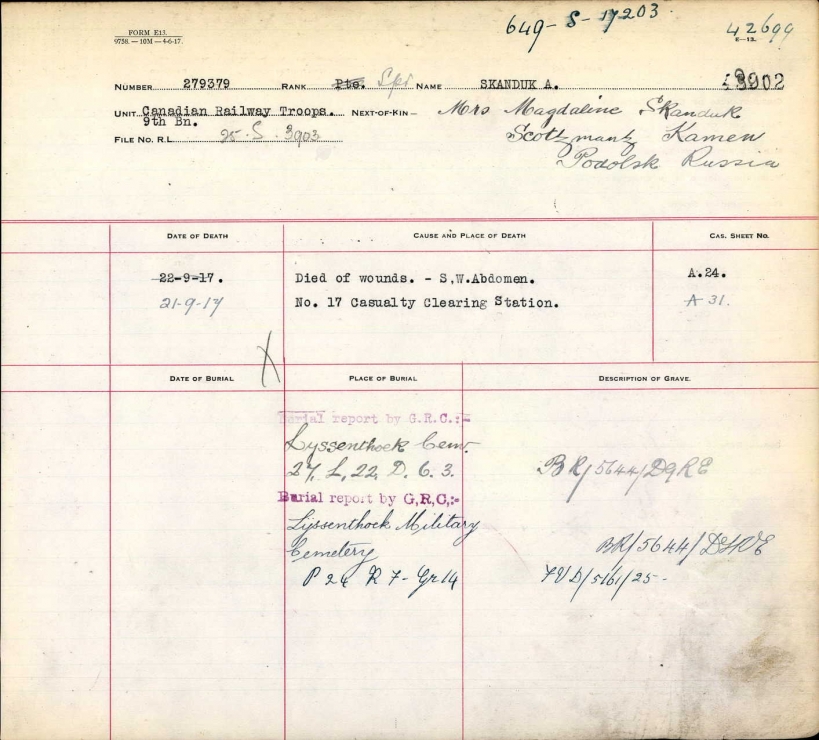 649-S-17203
42699
FORM E13.
9758.—10M—4-6-17.
E—13.
NUMBER 279379 RANK Pte. Spr NAME SKANDUK A.
UNIT Canadian Railway Troops. NEXT-OF-KIN— Mrs Magdaline Skanduk
9th Bn. Scottzmantz Kamen
FILE NO. R.L. 25.S.3903 Podolsk Russia
DATE OF DEATH CAUSE AND PLACE OF DEATH CAS. SHEET NO.
22-9-17. Died of wounds. - S.W.Abdomen. A.24.
21-9-17 No. 17 Casualty Clearing Station. A 31.
DATE OF BURIAL X PLACE OF BURIAL DESCRIPTION OF GRAVE.
Burial report by G.R.C.:-
Lyssenthoek Cem.
27. L. 22. D. 6. 3. BR/5644/DGRE
Burial report by G,R,C,:-
Lijssenthock Military
Cemetery BR/5644/DGRE
P 24 R 7 - Gr 14 /5161/25-